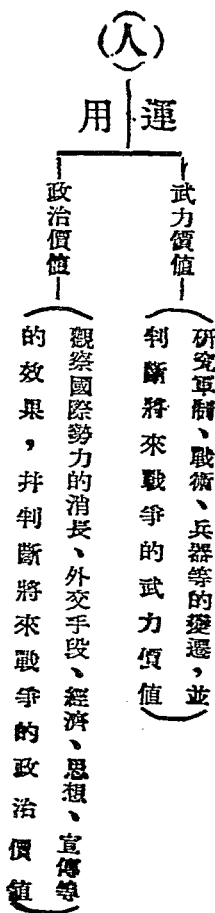 （人）
運用
武力價値
（研究軍制、戰術、兵器等的變遷，並
判斷將來戰爭的武力價値）
政治價値
（觀察國際勢力的消長、外交手段、經濟、思想、宣傳等
的效果，幷判斷將來戰爭的政治價値）